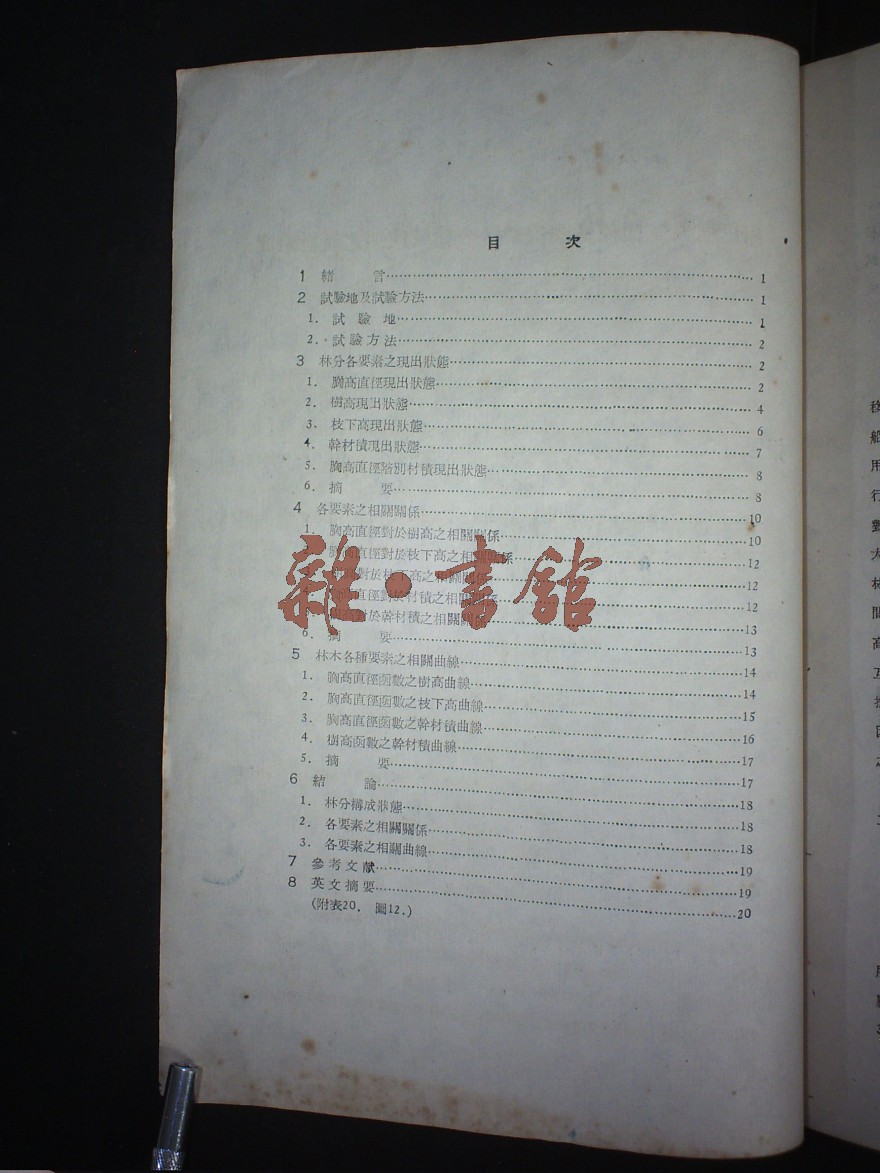 目 次
1 緒 言 1
2 試驗地及試驗方法 1
1. 試驗地 1
2. 試驗方法 2
3 林分各要素之現出狀態 2
1. 胸高直徑現出狀態 2
2. 樹高現出狀態 4
3. 枝下高現出狀態 6
4. 幹材積現出狀態 7
5. 胸高直徑階別材積現出狀態 8
6. 摘 要 8
4 各要素之相關關係 10
1. 胸高直徑對於樹高之相關關係 10
胸高直徑對於枝下高之相關關係 12
對於枝下高之相關關係 12
直徑對於材積之相關關係 12
對於幹材積之相關關係 13
6. 摘 要 13
雜·書館
5 林木各種要素之相關曲線 14
1. 胸高直徑函數之樹高曲線 14
2. 胸高直徑函數之枝下高曲線 15
3. 胸高直徑函數之幹材積曲線 16
4. 樹高函數之幹材積曲線 17
5. 摘 要 17
6 結 論 18
1. 林分構成狀態 18
2. 各要素之相關關係 18
3. 各要素之相關曲線 19
7 參考文献 19
8 英文摘要 20
(附表20. 圖12.)